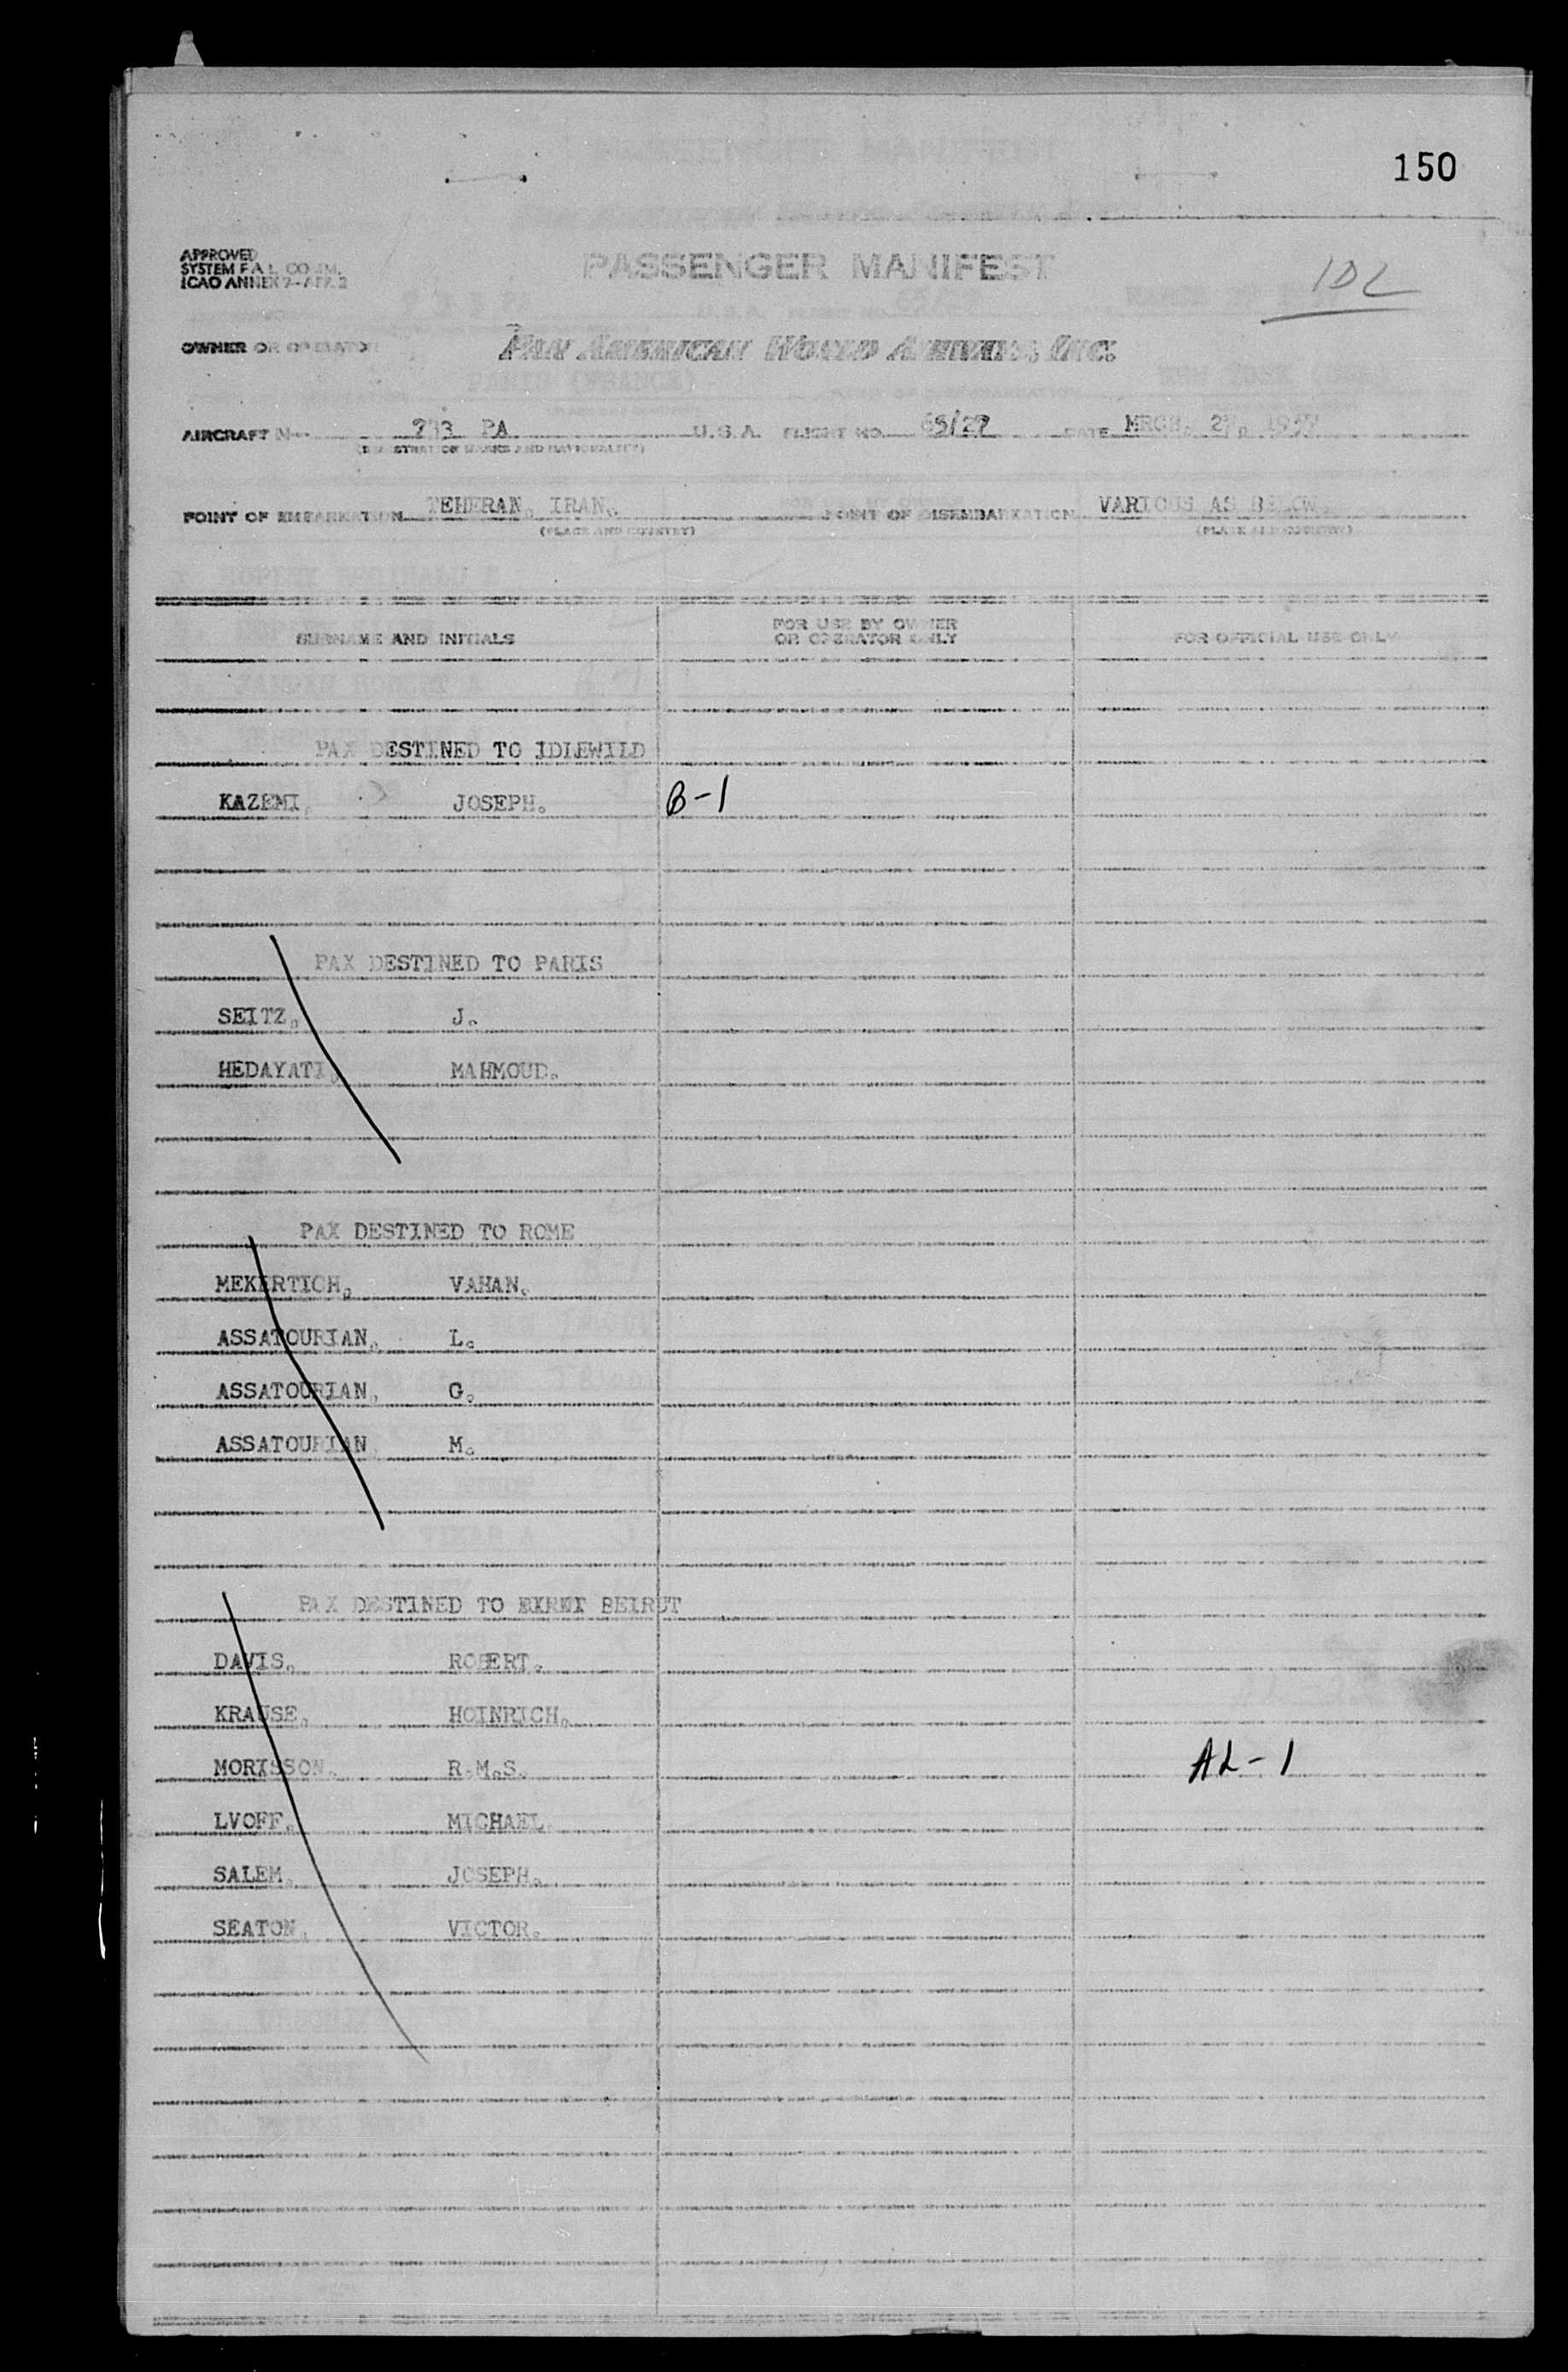 150
APPROVED
SYSTEM F A L COMM.
ICAO ANNEX 9-APP. 2
PASSENGER MANIFEST
102
OWNER OR OPERATOR PAN AMERICAN WORLD AIRWAYS, INC.
AIRCRAFT PA U.S.A. FLIGHT NO. DATE MRCH. 1957
(REGISTRATION MARKS AND NATIONALITY)
POINT OF EMBARKATION TEHERAN, IRAN. POINT OF DISEMBARKATION VARIOUS AS BELOW.
(PLACE AND COUNTRY) (PLACE AND COUNTRY)
SURNAME AND INITIALS FOR USE BY OWNER OR OPERATOR ONLY FOR OFFICIAL USE ONLY
PAX DESTINED TO IDLEWILD
KAZEMI, JOSEPH. B-1
PAX DESTINED TO PARIS
SEITZ, J.
HEDAYATI, MAHMOUD.
PAX DESTINED TO ROME
MEKERTICH, VAHAN.
ASSATOURIAN, L.
ASSATOURIAN, G.
ASSATOURIAN M.
PAX DESTINED TO BEIRUT
DAVIS, ROBERT.
KRAUSE, HOINRICH.
MORISSON, R.M.S. AL-1
LVOFF, MICHAEL
SALEM, JOSEPH.
SEATON, VICTOR.